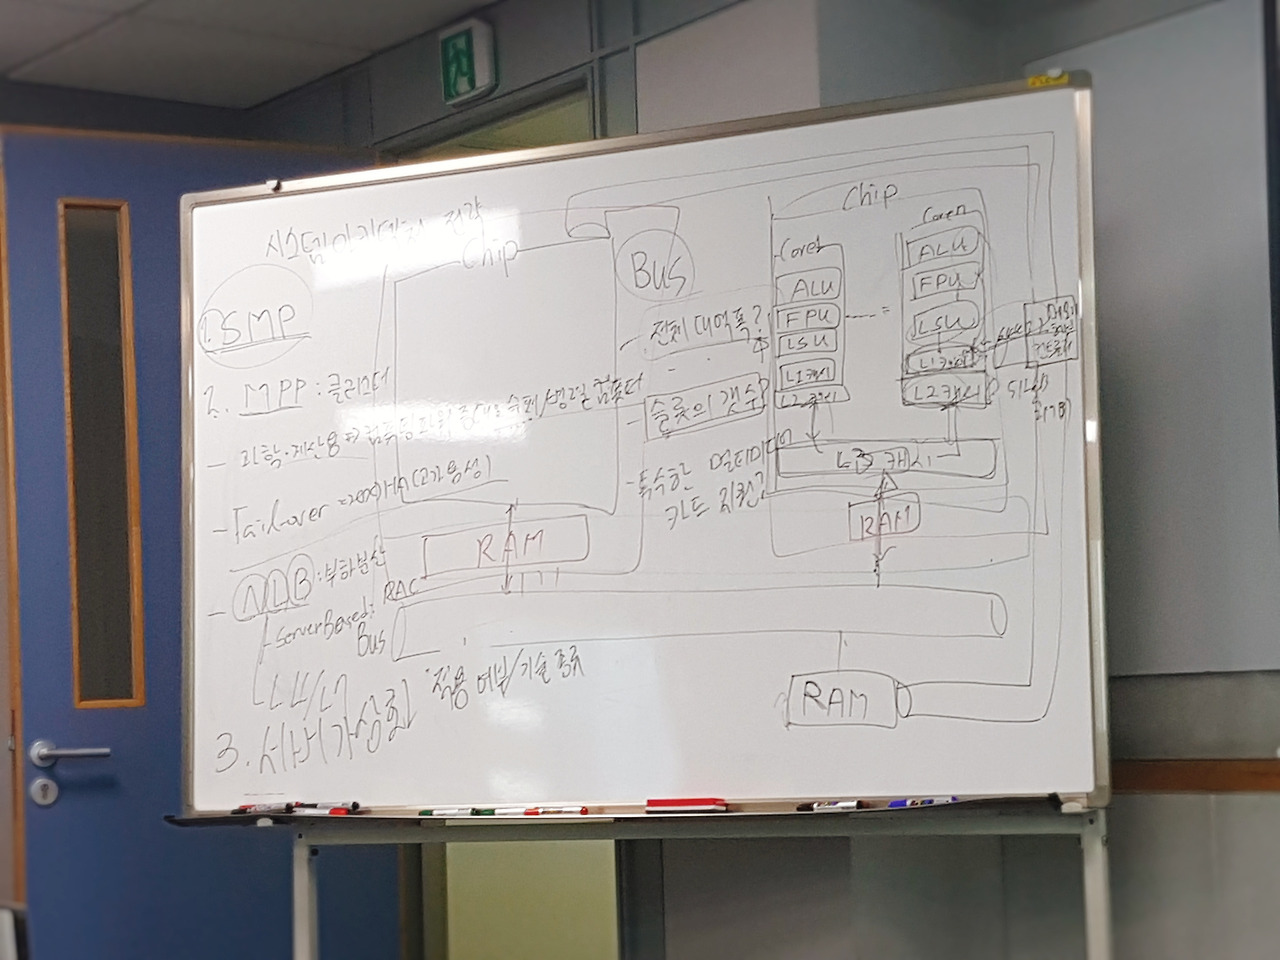 시스템아키텍처 전략
1. SMP
2. MPP : 클러스터
- 과학·계산용 => 컴퓨팅파워 증대로 슈퍼/생렬 컴퓨터
- Failover => HA(고가용성)
- NLB : 부하분산
ServerBased : RAC
L4/L7
3. 서버가상화 적용 여부/기술 종류
Chip
RAM
Bus
Bus
- 전체 대역폭?
- 슬롯의 갯수
- 특수한 멀티미디어
카드 지원?
Chip
Core1
ALU
FPU
LSU
L1캐시
L2캐시
Core n
ALU
FPU
LSU
L1캐시
L2캐시
L3 캐시
RAM
RAM
컨트롤러